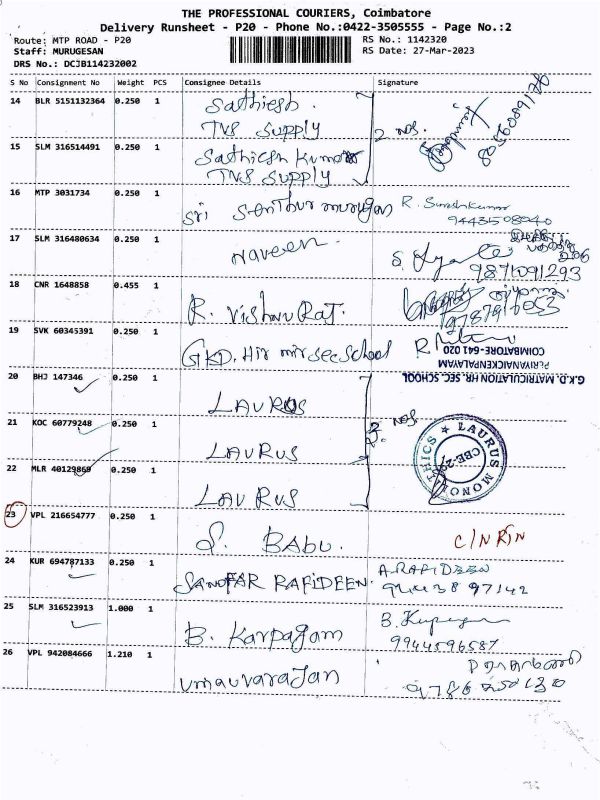 THE PROFESSIONAL COURIERS, Coimbatore
Delivery Runsheet - P20 - Phone No.:0422-3505555 - Page No.:2
Route: MTP ROAD - P20
RS No.: 1142320
Staff: MURUGESAN
RS Date: 27-Mar-2023
DRS No.: DCJB114232002
S No Consignment No Weight PCS Consignee Details Signature
14 BLR 5151132364 0.250 1 Sathiesh.
TVS Supply
2 nos.
8056089176
15 SLM 316514491 0.250 1 Sathiesh Kumar
TVS Supply
16 MTP 3031734 0.250 1 Sri Senthur murugan R. Sureshkumar
17 SLM 316480634 0.250 1 naveen.
9871091293
18 CNR 1648858 0.455 1 R. Vishnu Raj.
19 SVK 60345391 0.250 1 GKD. Hir mir sec School
COIMBATORE-641 020
PERIYANAICKENPALAYAM
G.K.D. MATRICULATION HR. SEC. SCHOOL
20 BHJ 147346 0.250 1 LAURUS
21 KOC 60779248 0.250 1 LAURUS
3 nos
22 MLR 40129869 0.250 1 LAURUS
LAURUS MONOLITHICS
CBE-29
23 VPL 216654777 0.250 1 S. BABU.
C/N R/N
24 KUR 694787133 0.250 1 SANOFAR RAFIDEEN. A.RAFIDEEN
97142
25 SLM 316523913 1.000 1 B. Karpagam
9944596587
26 VPL 942084666 1.210 1 umauvarajan